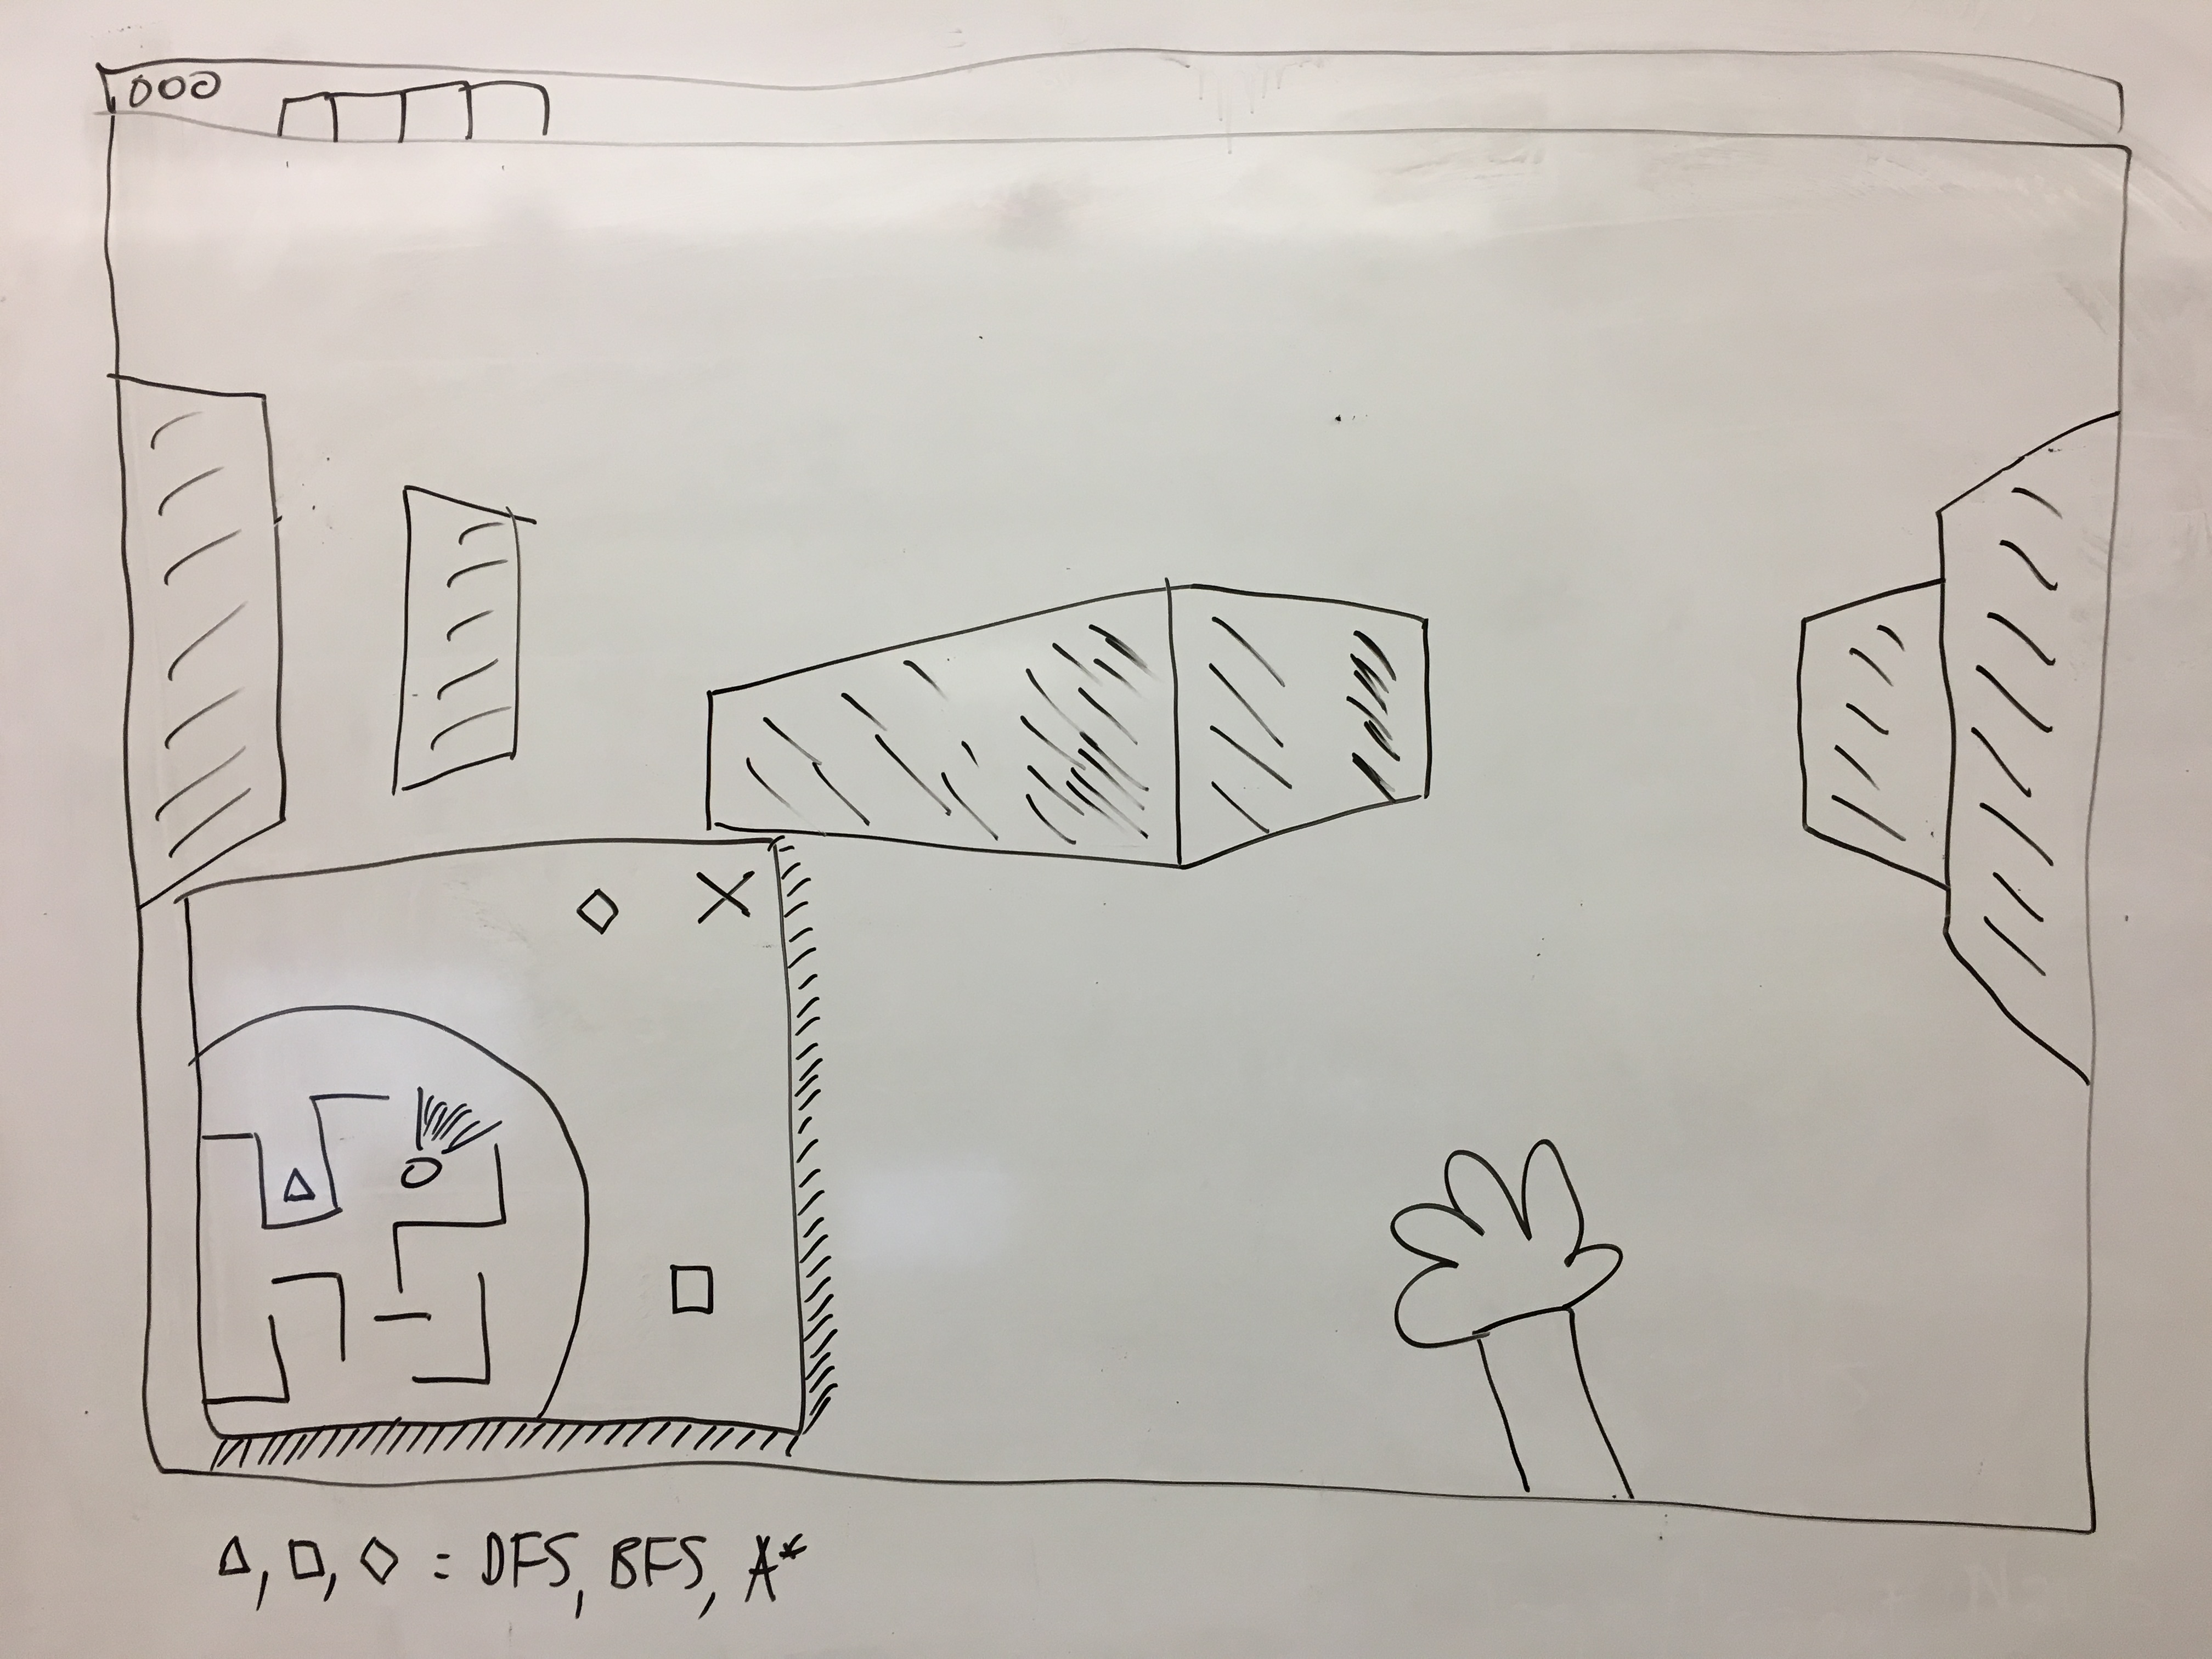 △, □, ◇ = DFS, BFS, A*